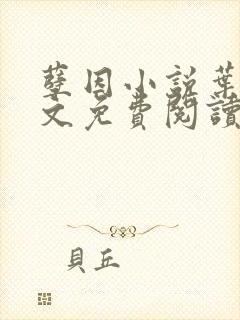 孽因小説葉
文免費閱讀
貝丘